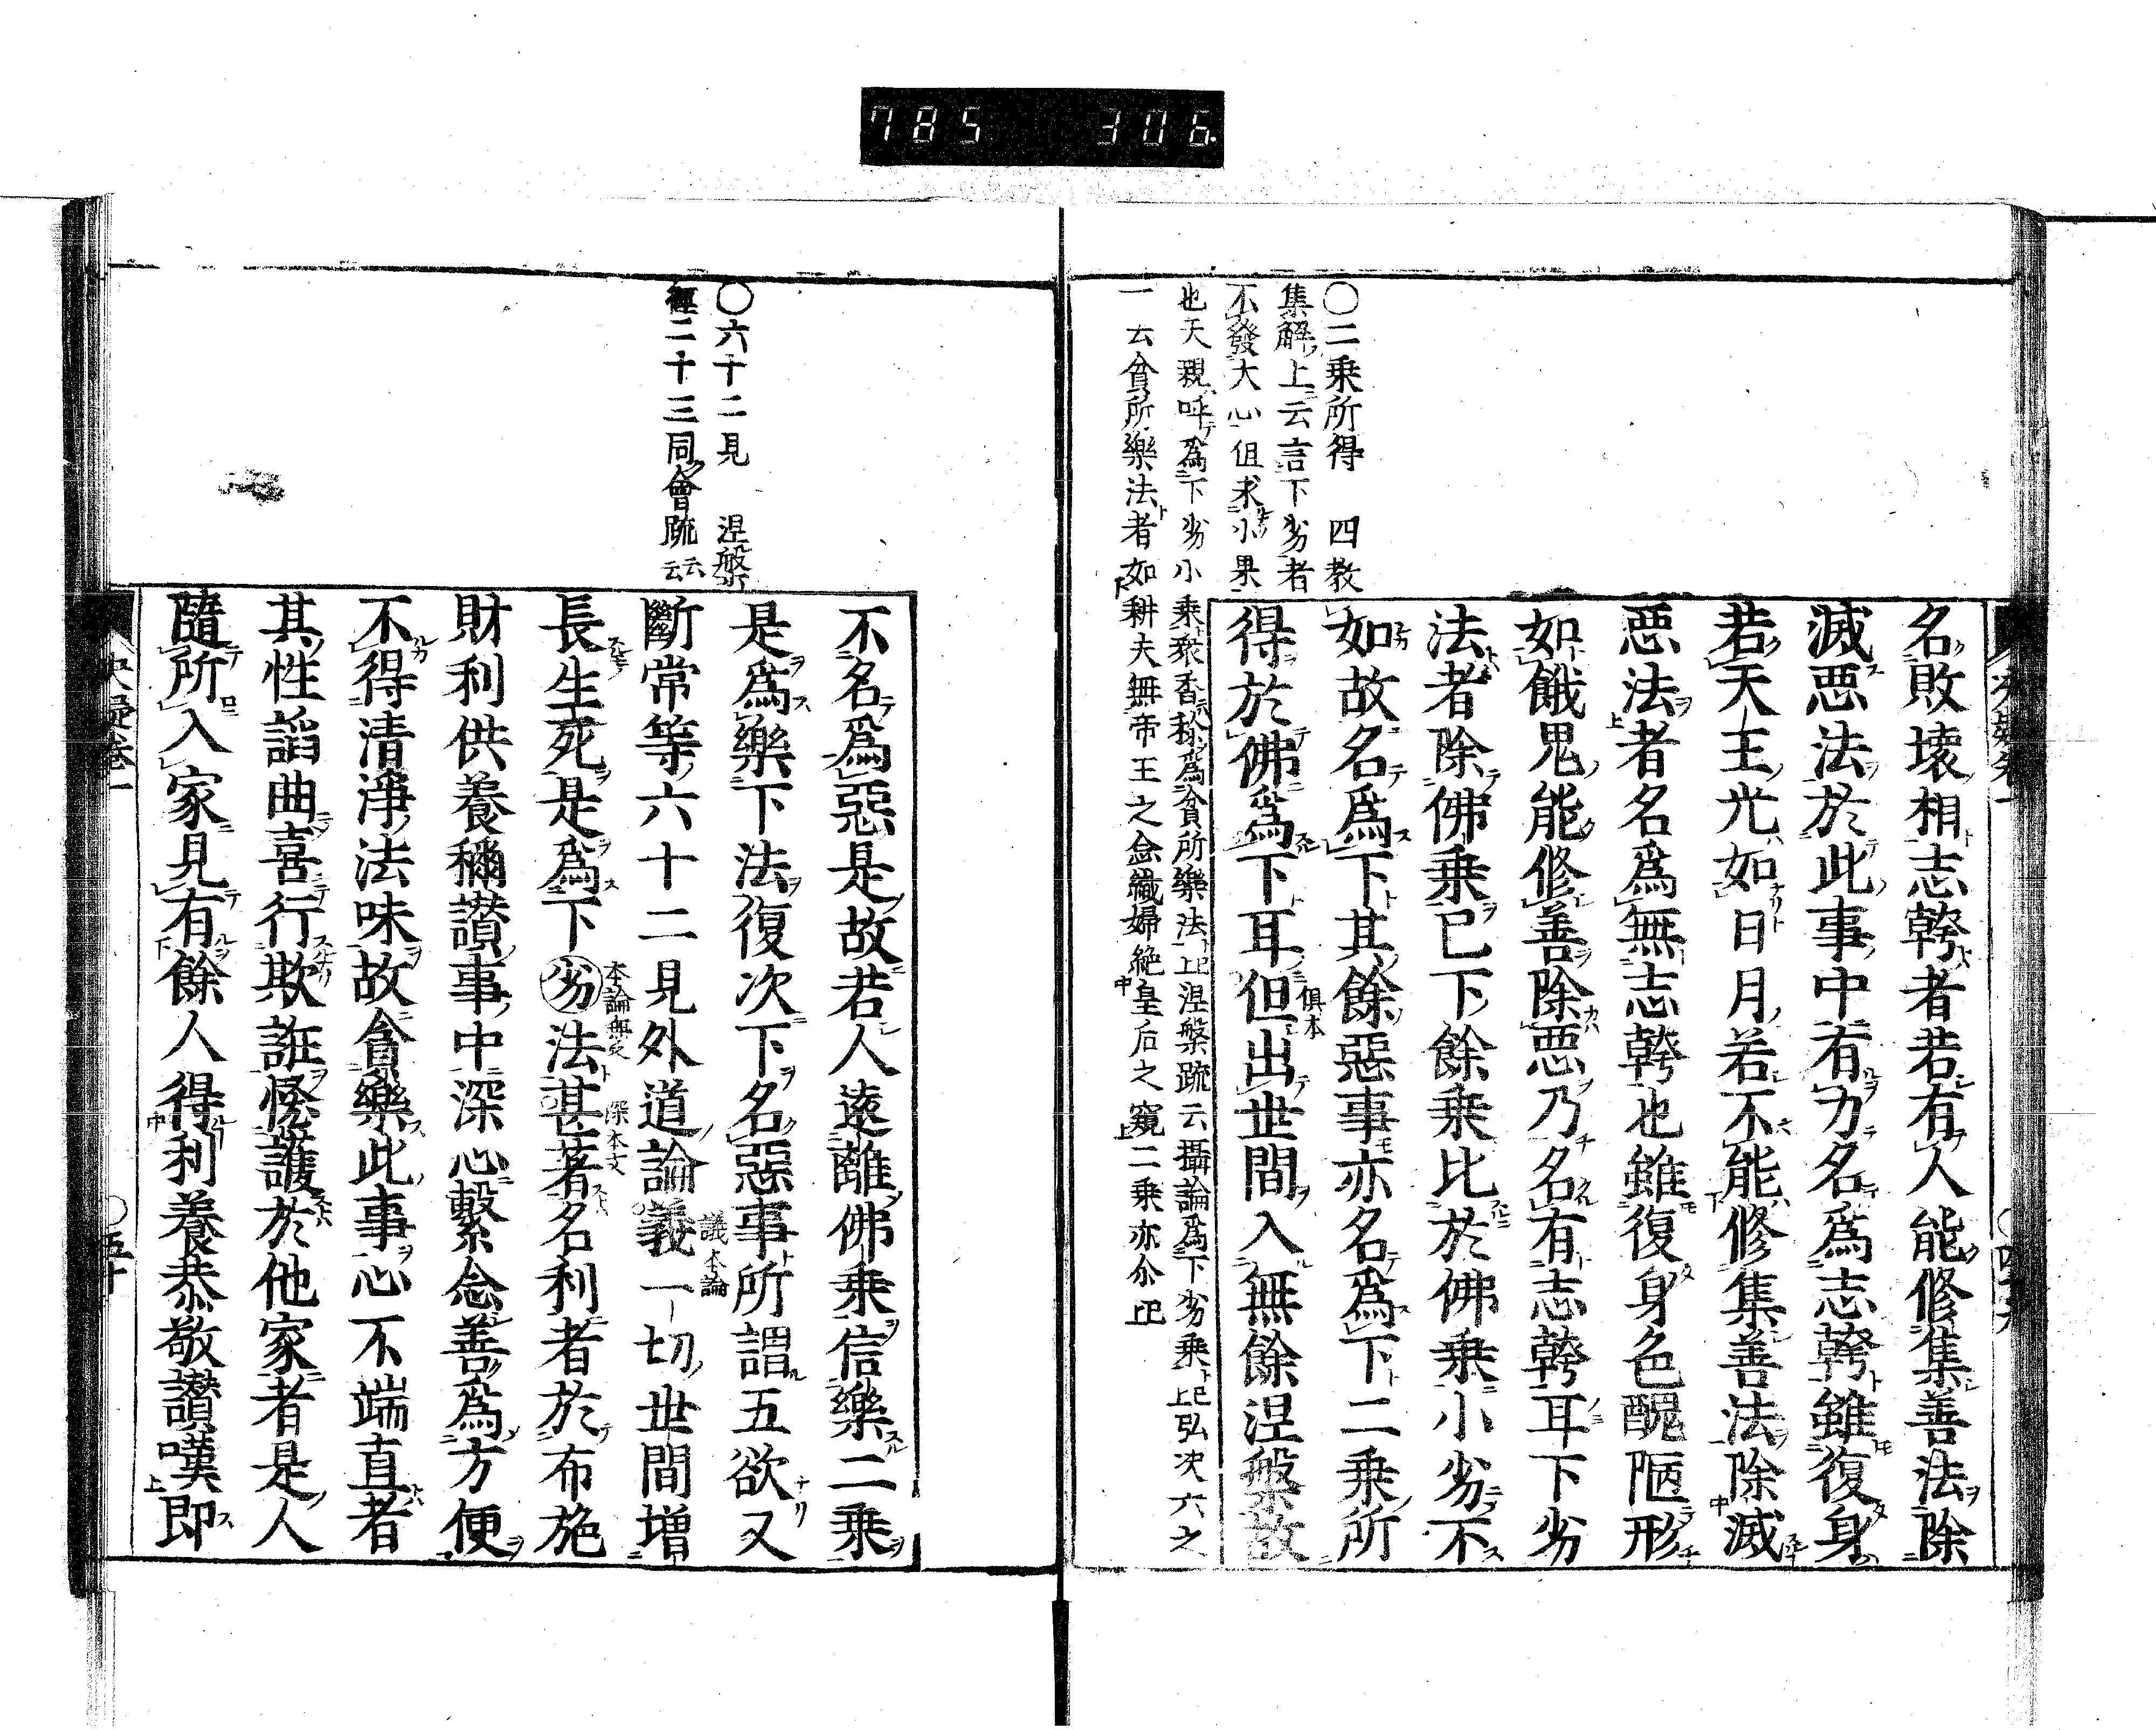 785 306
〇二乗所得 四教
集解上云言下劣者
不發大心但求小果
也天親呼爲下劣小乗聚香秘爲貪所樂法上已涅槃疏云攝論爲下劣乗上已弘决六之
一云貪所樂法者如耕夫無帝王之念織婦絶皇后之窺二乗亦尒上已
名敗壊相志幹者若有人能修集善法除
滅惡法於此事中有力名爲志幹雖復身
若天王光如日月若不能修集善法除滅
惡法者名爲無志幹也雖復身色醜陋形
如餓鬼能修善除惡乃名有志幹耳下劣
法者除佛乗已下餘乗比於佛乗小劣不
如故名爲下其餘惡事亦名爲下二乗所
得於佛爲下耳但出世間入無餘涅槃故
俱本
〇六十二見 涅槃
經二十三同會疏云云
不名爲惡是故若人遠離佛乗信樂二乗
是爲樂下法復次下名惡事所謂五欲又
斷常等六十二見外道論義一切世間增
議本論
長生死是爲下劣法甚著名利者於布施
本論無之
深本文
財利供養稱讃事中深心繫念善爲方便
不得清淨法味故貪樂此事心不端直者
其性謟曲喜行欺誑慳護於他家者是人
隨所入家見有餘人得利養恭敬讃嘆即
决疑卷一
〇五十